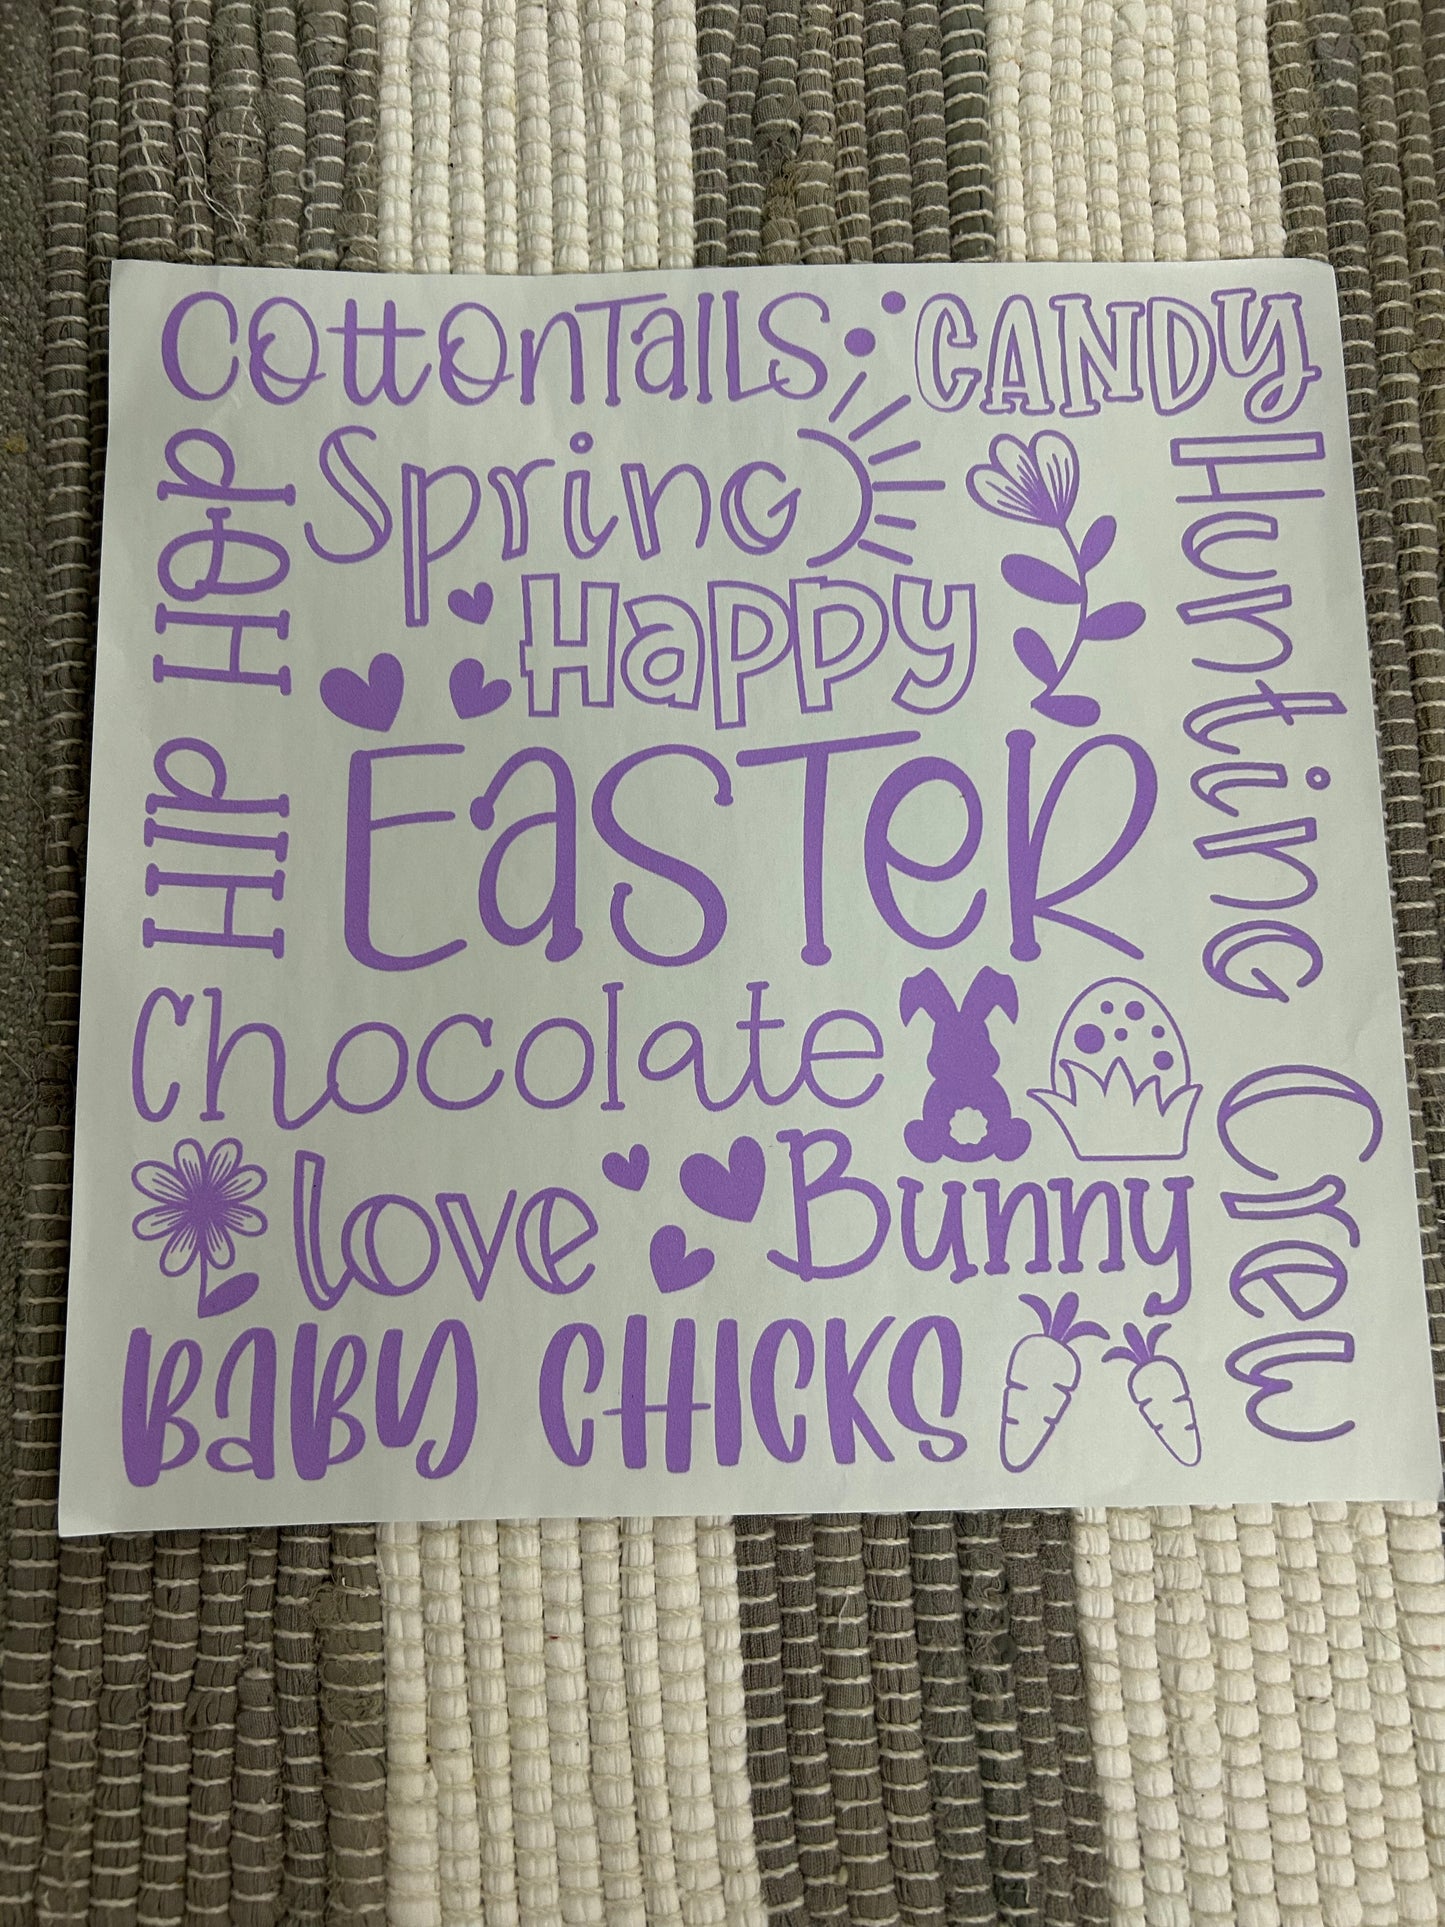 Cottontails
CANDY
Spring
HIP HOP
Happy
Hunting Crew
EasTeR
Chocolate
love
Bunny
BaBY CHICKS